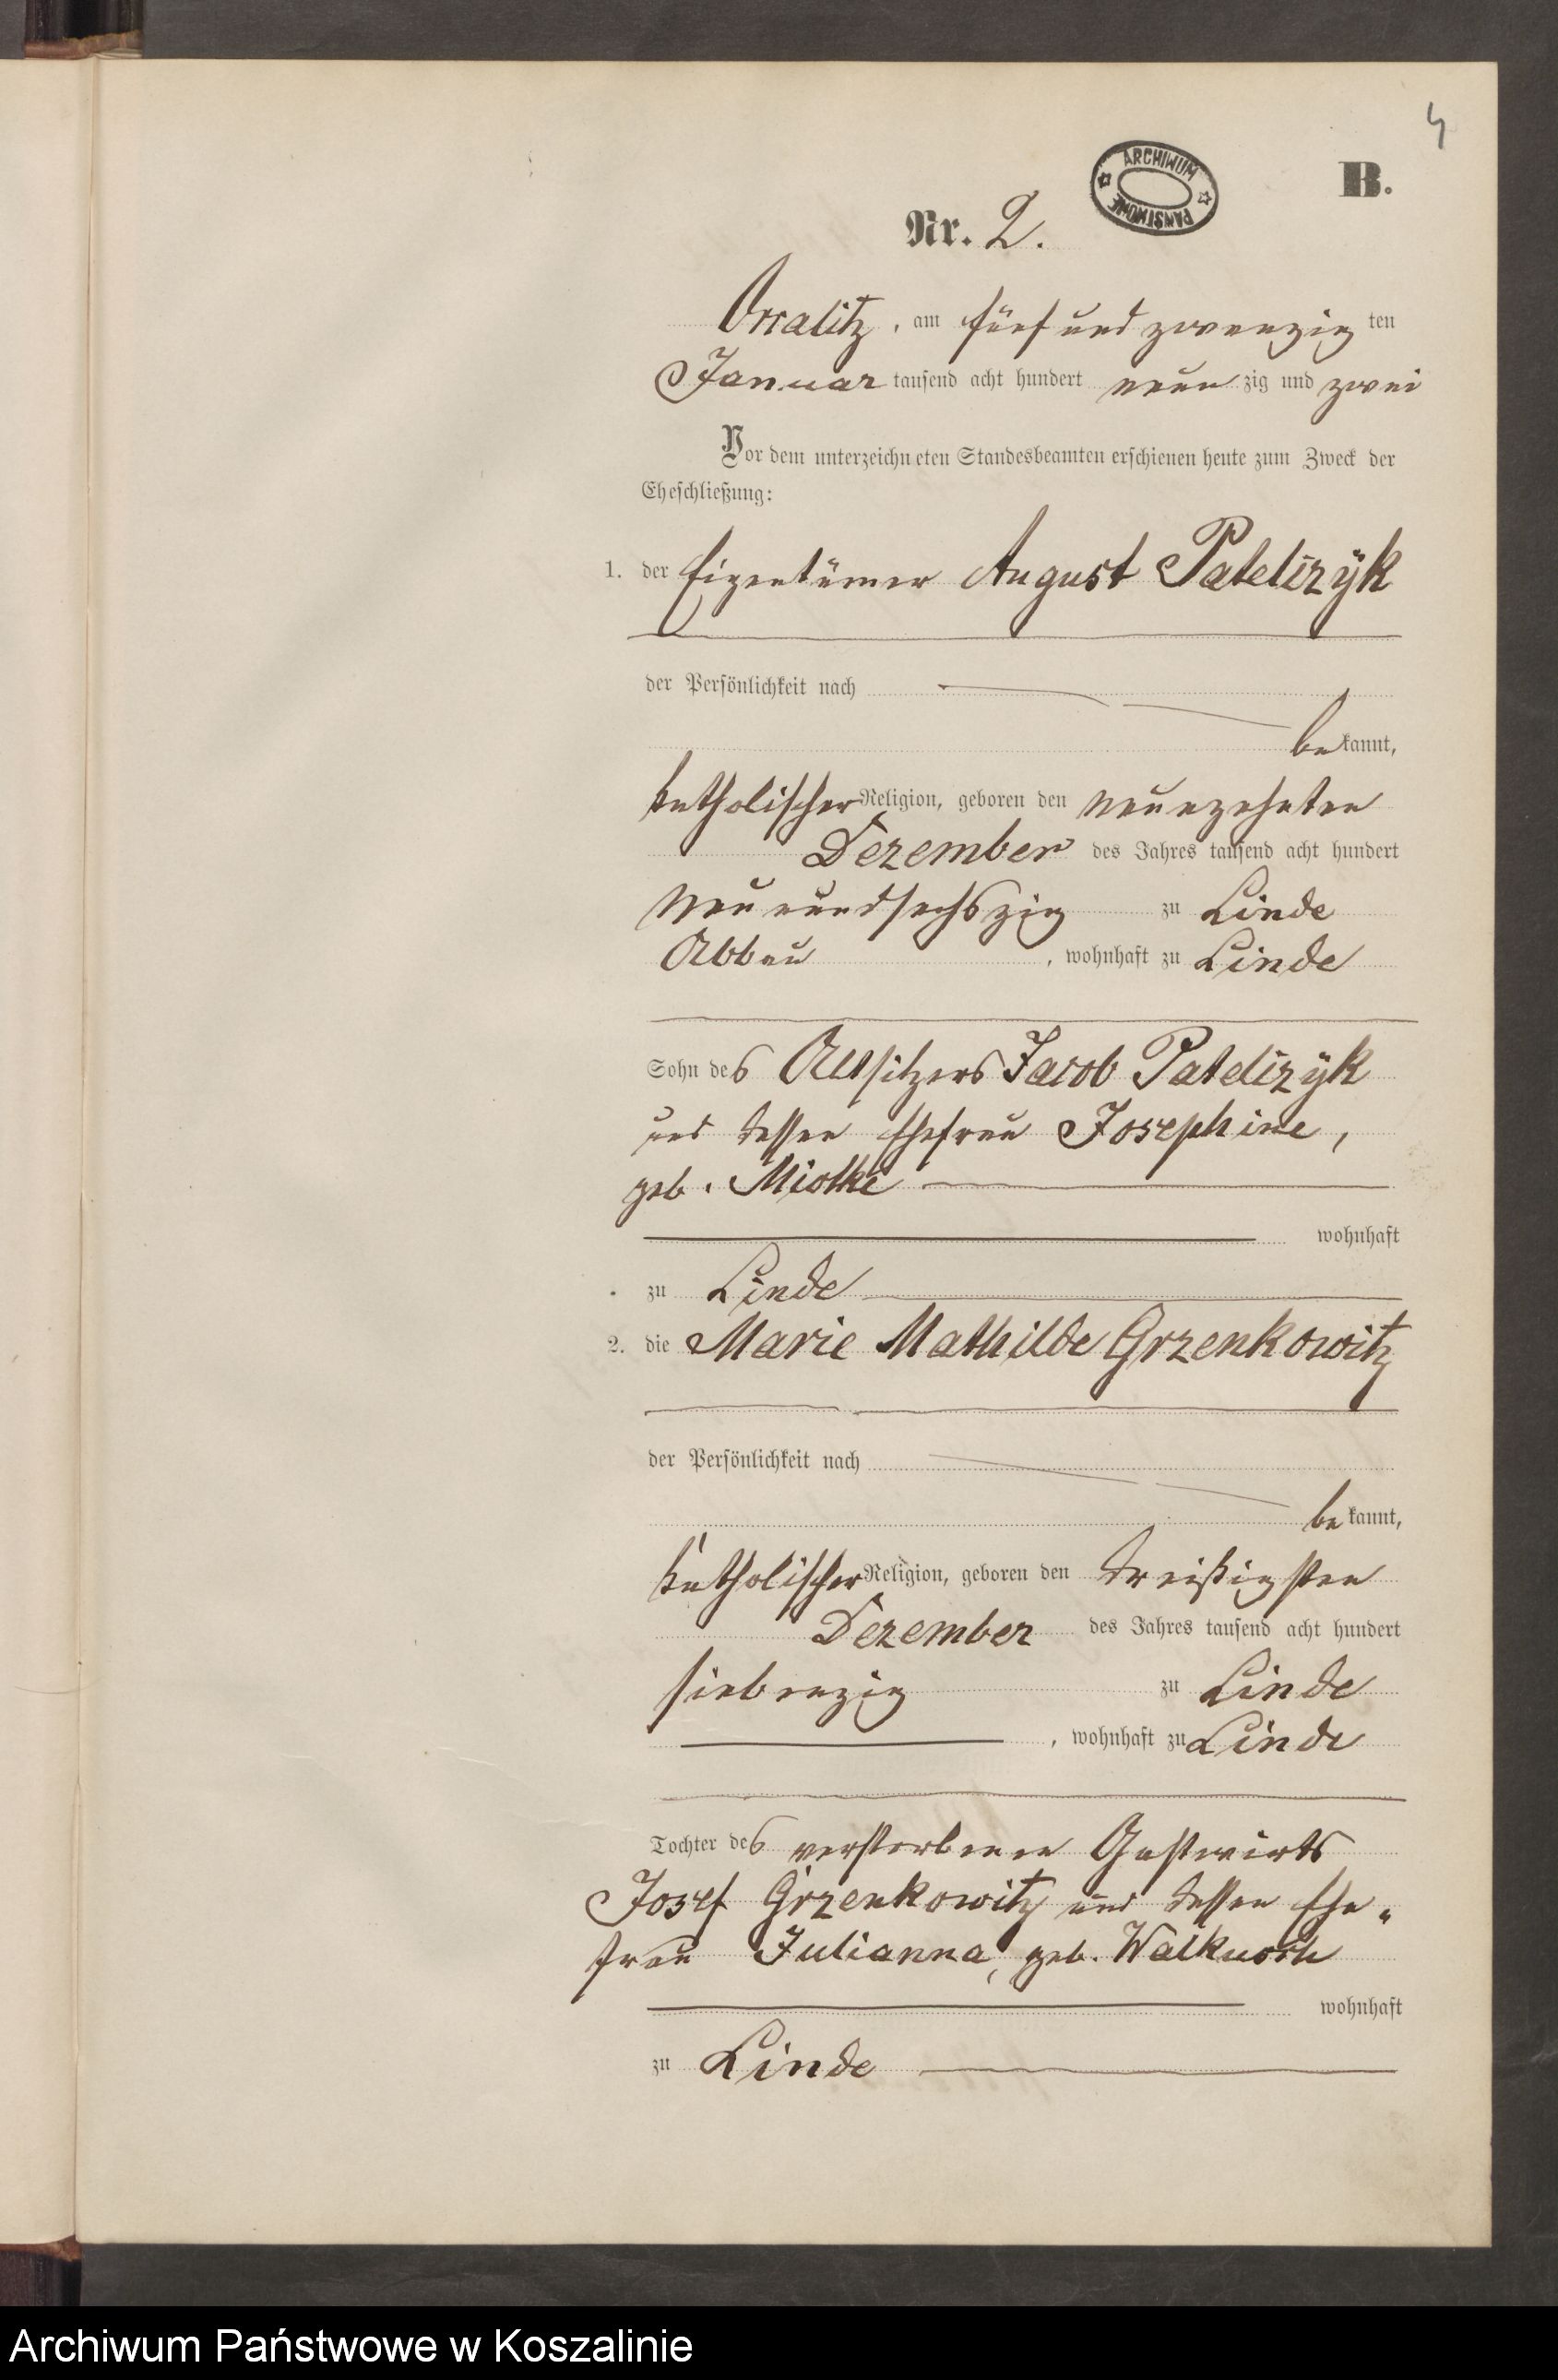 4
ARCHIWUM PAŃSTWOWE
B.
Nr. 2.
Ossalitz, am fünf und zwanzig ten
Januar tausend acht hundert neun zig und zwei
Vor dem unterzeichneten Standesbeamten erschienen heute zum Zweck der
Eheschließung:
1. der Eigentümer August
der Persönlichkeit nach
bekannt,
katholischer Religion, geboren den neunzehnten
Dezember des Jahres tausend acht hundert
neunundsechszig zu Linde
Abbau, wohnhaft zu Linde
Sohn des Altsitzers Jacob
und dessen Ehefrau Josephine,
geb. Miotke
wohnhaft
zu Linde
2. die Marie Mathilde Grzenkowitz
der Persönlichkeit nach
bekannt,
katholischer Religion, geboren den dreißigsten
Dezember des Jahres tausend acht hundert
siebenzig zu Linde
, wohnhaft zu Linde
Tochter des verstorbenen Gastwirts
Josef Grzenkowitz und dessen Ehe-
frau Julianna, geb.
wohnhaft
zu Linde
Archiwum Państwowe w Koszalinie